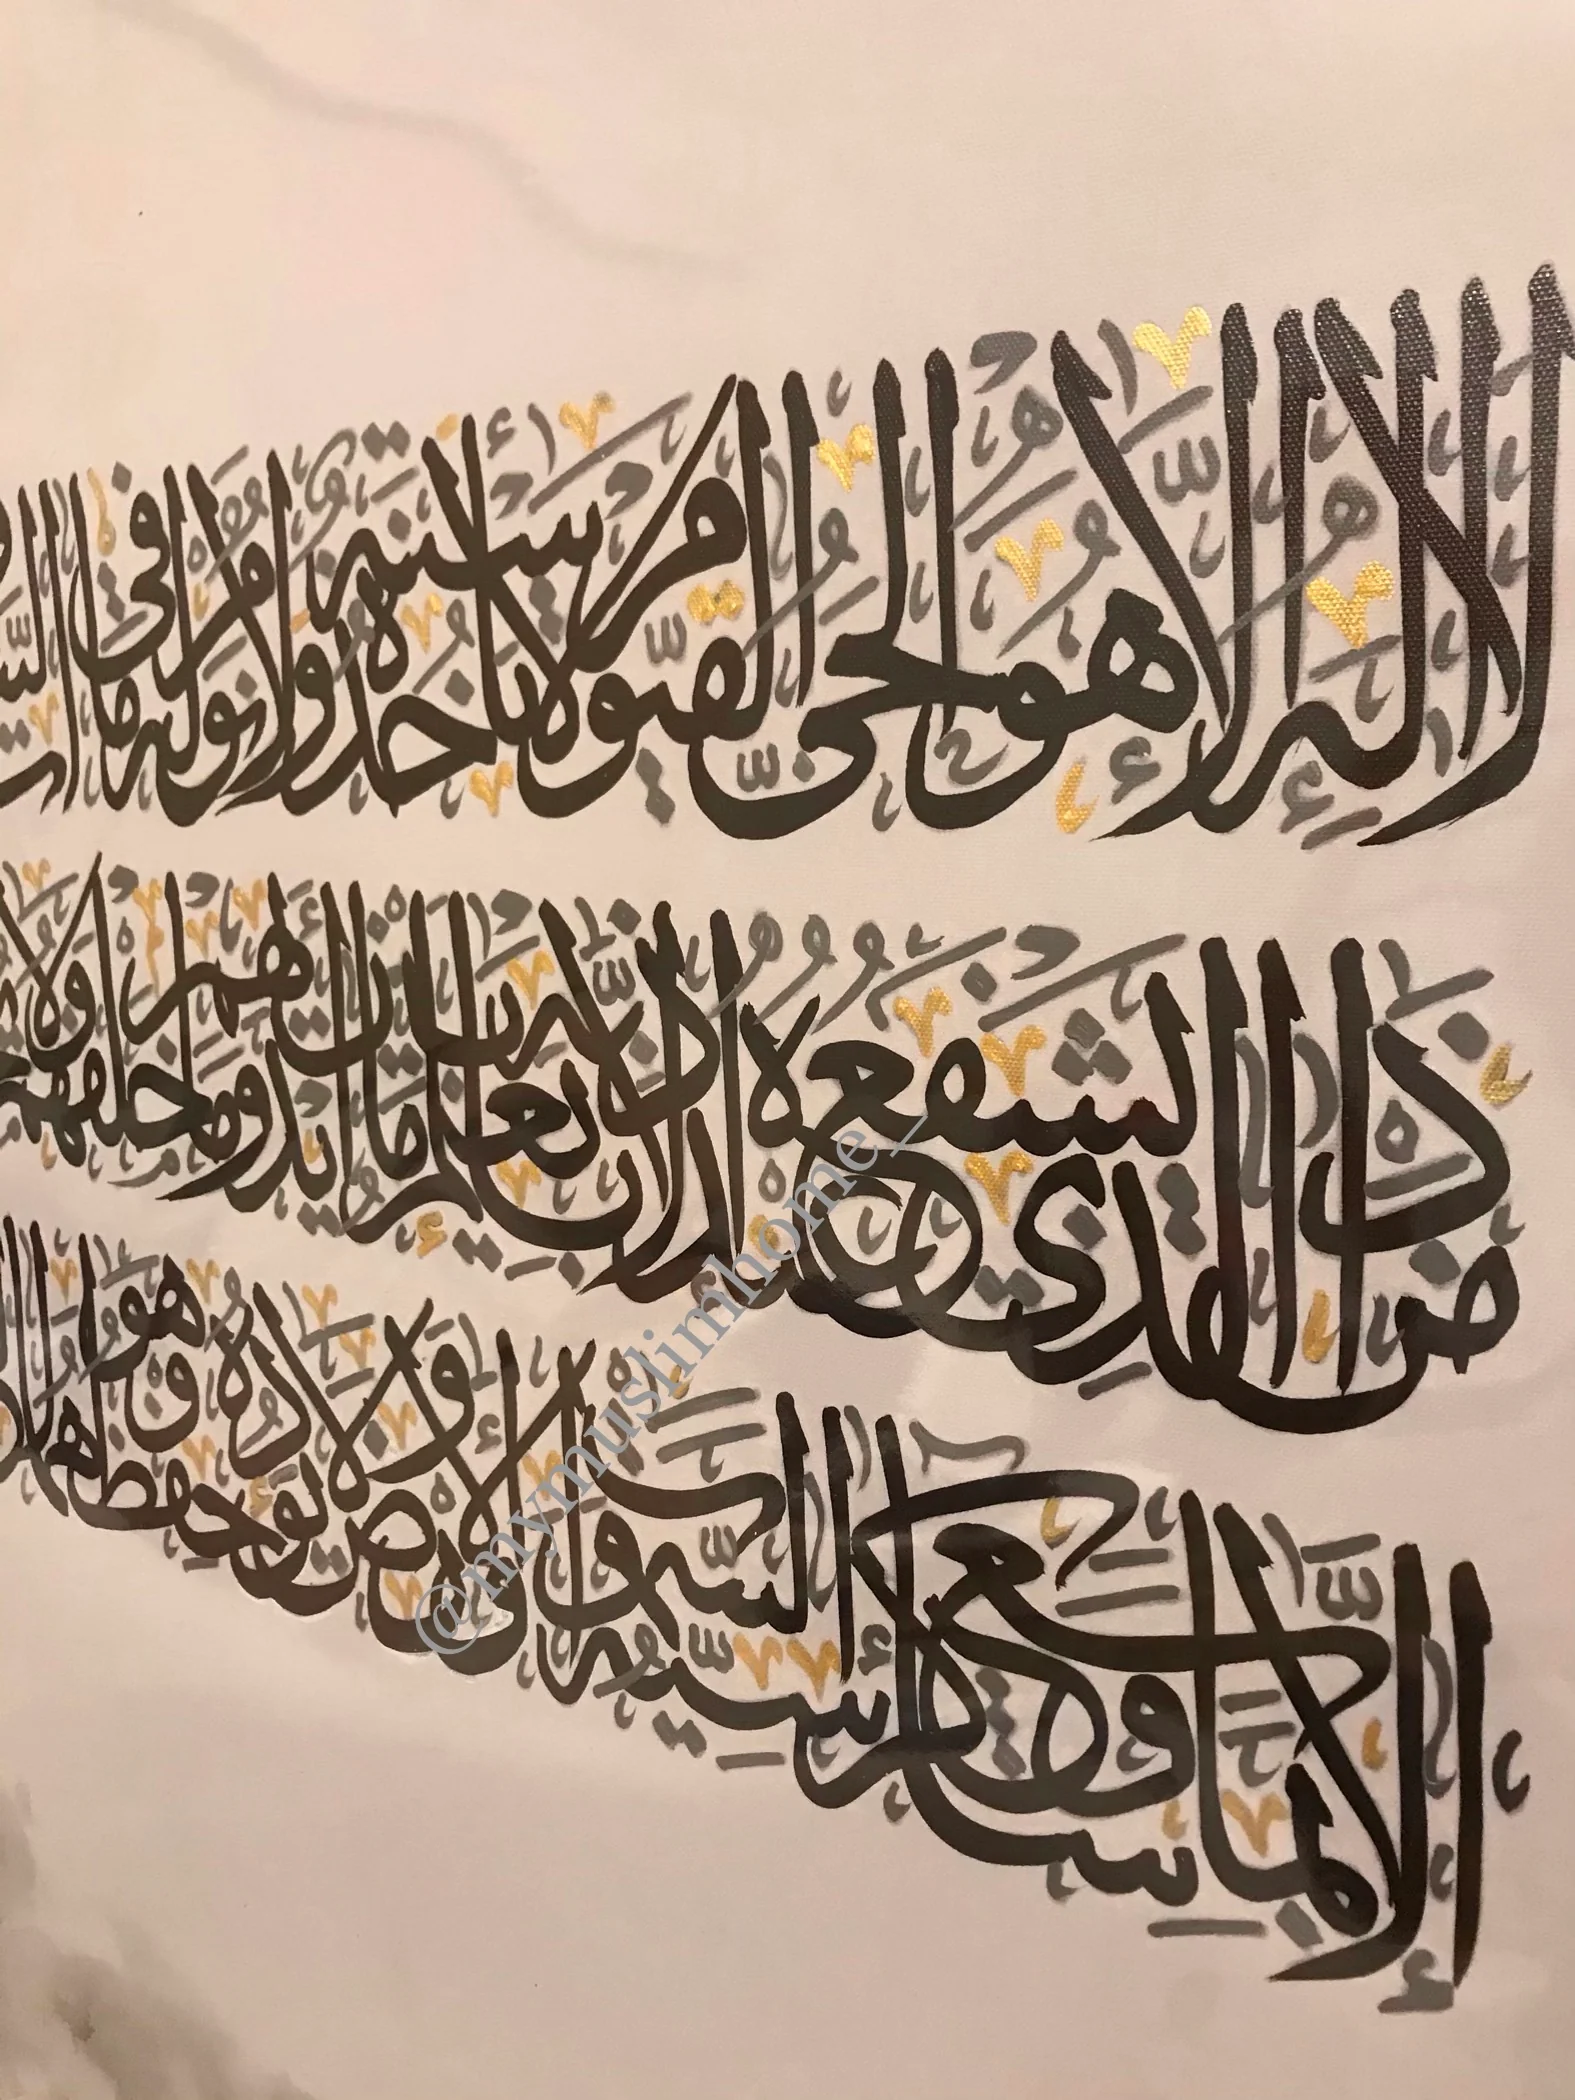 لا إله إلا هو الحي القيوم لا تأخذه سنة ولا نوم له ما في
ض من ذا الذي يشفع عنده إلا بإذنه يعلم ما بين أيديهم وما خلفهم ولا
إلا بما شاء وسع كرسيه السموت والأرض ولا يئوده حفظهما وهو
@mymuslimhome_